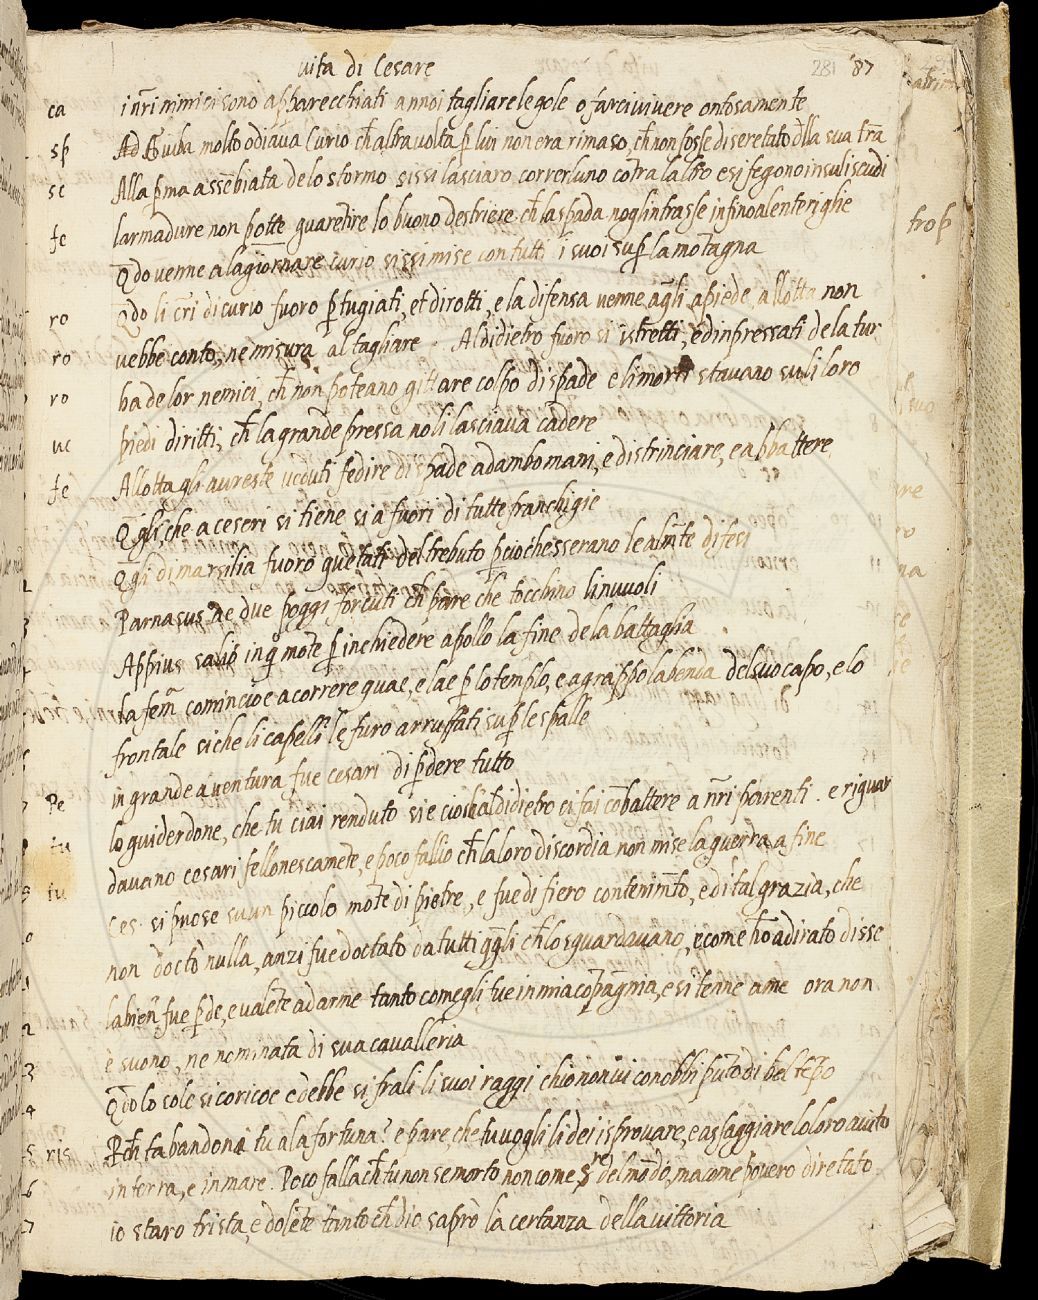 vita di Cesare 281 87
ca i nr̄i nimici sono apparecchiati a noi tagliare le gole o farci vivere ontosamente
sp Ad Guiba molto odiava Curio ch̄ altra volta p̱ lui non era rimaso, ch̄ non fosse diseretato dlla sua trā
se Alla p̱ma assēbiata de lo stormo sissi lasciaro correr luno cōtra laltro e si fegono in su li scudi
fe larmadure non potte guaretire lo buono destriere ch̄ la spada nogli ntrasse infino alenterighe
Q̄do venne ala giornare curio sissi mise con tutti i suoi sup̱ la mōtagna
ro Q̄do li cr̄i di curio fuoro p̱tugiati, et dirotti, e la difensa venne agli apiede, allotta non
ro vebbe conto, ne misura al tagliare. Al didietro fuoro si istretti, ed inpressati de la tur
ro ba de lor nemici, ch̄ non poteano gittare colpo di spade e li morti stavano su li loro
uc piedi diritti, ch̄ la grande pressa no li lasciava cādere
fe Allotta gli avreste veduti fedire di spade ad ambo mani, e distrinciare, e abbattere
Q̄gli, che a ceseri si tiene sia fuori di tutte franchigie
Q̄gli di marsilia fuoro quetati del trebuto p̱cioche sserano lealmt̄e difesi
Parnasus ae due poggi forcuti ch̄ pare che tocchino li nuvoli
Appius salio in q̄ mōte p̱ inchiedere apollo la fine de la battaglia
la fem̄ comincioe a correre quae, e lae p̱ lo templo, e agrappo la benda del suo capo, e lo
frontale si che li capelli le furo arruffati sup̱ le spalle
in grande aventura fue cesari di p̱dere tutto
Pe lo guiderdone, che tu ci ai renduto si e cioe al didietro ci fai cōbattere a nr̄i parenti. e riguar
tu davano cesari fellonescamēte, e poco fallio ch̄ la loro discordia non mise la guerra a fine
tu Ces. si puose su un piccolo mōte di pietre, e fue di fiero contenimt̄o, e di tal grazia, che
non doctò nulla, anzi fue doctato da tutti q̄gli ch̄ lo sguardavano, e come ho adirato disse
labien̄ fue p̱de, e valēte ad arme tanto comegli fue in mia cōpagnia, e si tenne a me ora non
è suono, ne nominata di sua cavalleria
Q̄do lo sole si coricoe ed ebbe si frali li suoi raggi chio non ivi conobbi pūto di bel tēpo
ris P̱ch̄ ta bandona tu a la fortuna? e pare, che tu vogli li dei isprovare, e assaggiare lo loro aiuto
in terra, e in mare. Poco falla ch̄ tu non se morto non come sre del mōdo, ma come povero diretato
io staro trista, e dolēte tanto ch̄ dio saprò la certanza della vittoria